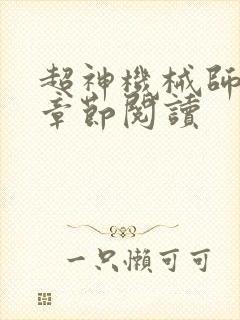 超神機械師
章節閱讀
一只懶可可